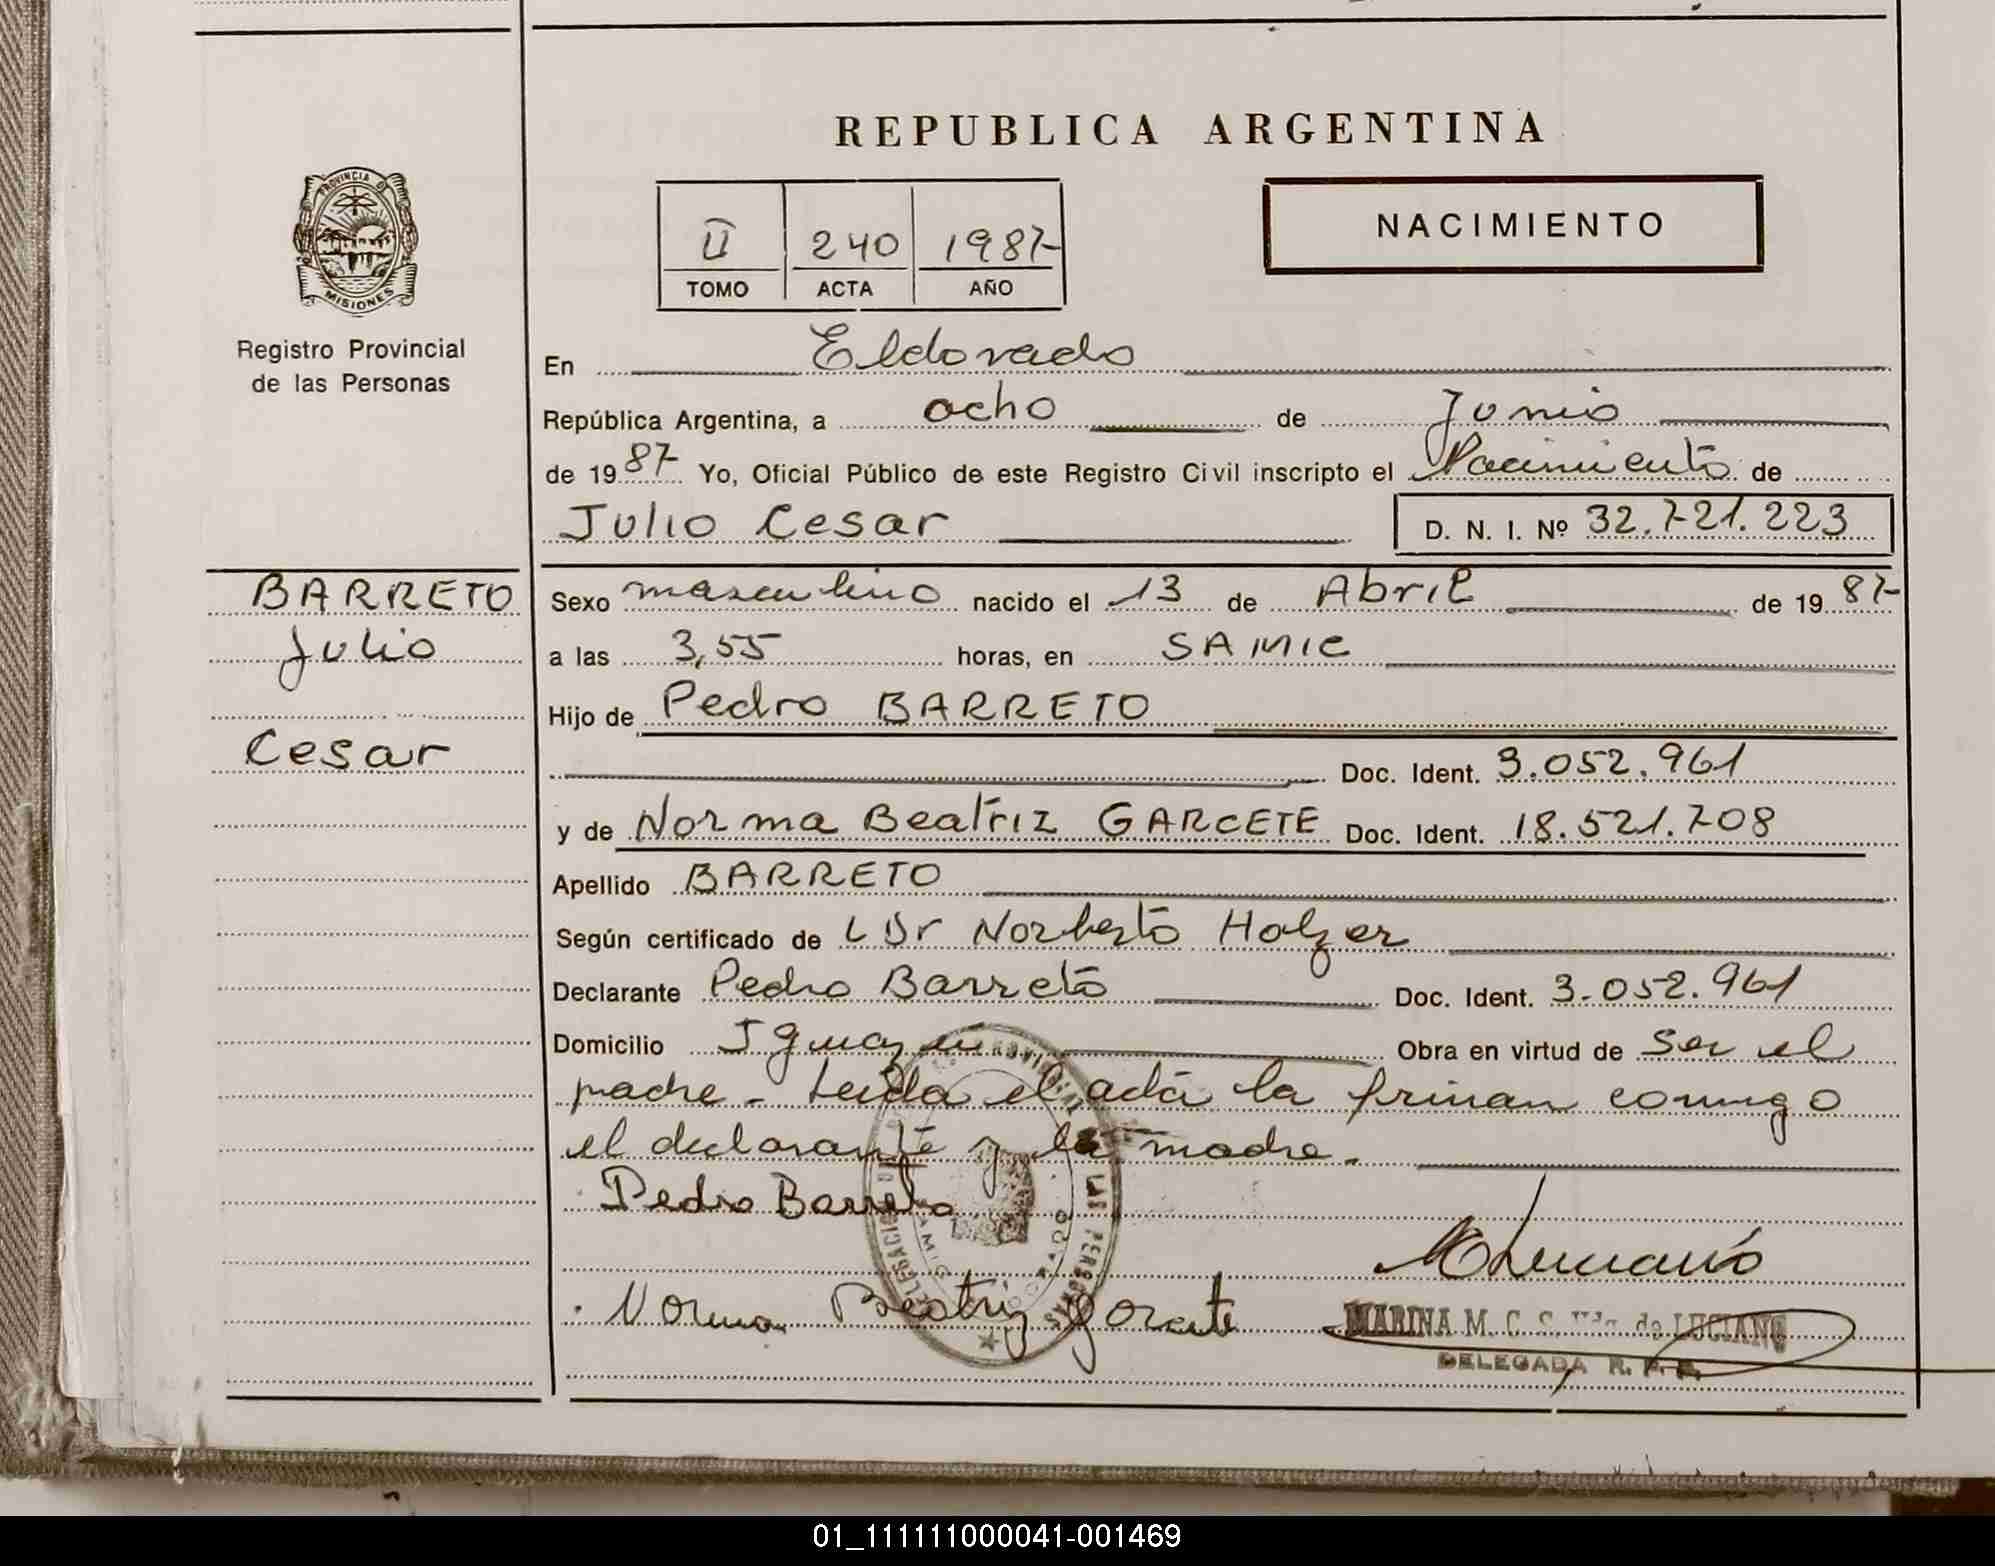 REPUBLICA ARGENTINA
PROVINCIA DE
MISIONES
Registro Provincial
de las Personas
II 240 1987
TOMO ACTA AÑO
NACIMIENTO
En Eldorado
República Argentina, a ocho de Junio
de 1987 Yo, Oficial Público de este Registro Civil inscripto el Nacimiento de
Julio Cesar D. N. I. Nº 32.721.223
BARRETO
Julio
Cesar
Sexo masculino nacido el 13 de Abril de 1987
a las 3,55 horas, en SAMIC
Hijo de Pedro BARRETO
Doc. Ident. 3.052.961
y de Norma Beatriz GARCETE Doc. Ident. 18.521.708
Apellido BARRETO
Según certificado de Dr Norberto Holzer
Declarante Pedro Barreto Doc. Ident. 3.052.961
Domicilio Iguazu Obra en virtud de ser el
padre - Leida el acta la firman conmigo
el declarante y la madre.
Pedro Barreto
Norma Beatriz Garcete
MARINA M. C. S. Vda. de LUCIANO
DELEGADA R. P. P.
LAS PERSONAS
01_111111000041-001469